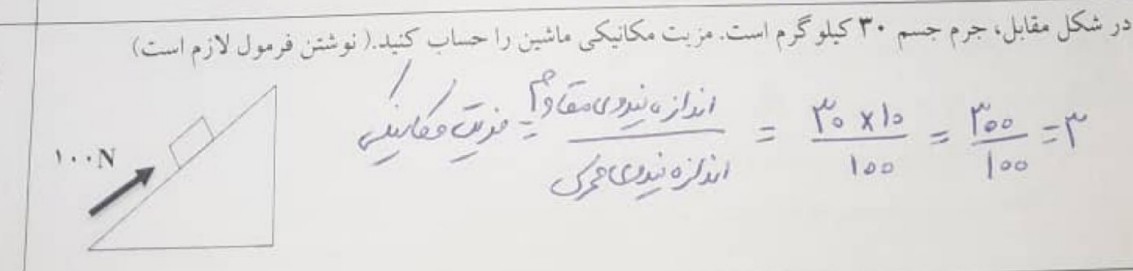 در شکل مقابل، جرم جسم ۳۰ کیلو گرم است. مزیت مکانیکی ماشین را حساب کنید.( نوشتن فرمول لازم است)
۱۰۰N
مزیت مکانیکی = اندازه نیروی مقاوم / اندازه نیروی محرک = ۳۰ × ۱۰ / ۱۰۰ = ۳۰۰ / ۱۰۰ = ۳